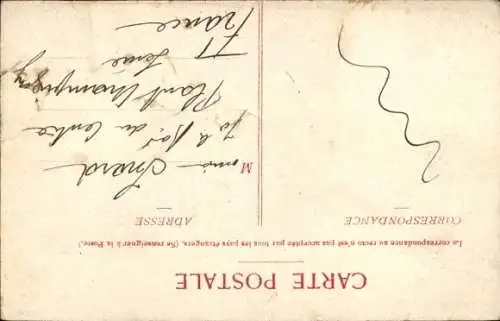 CARTE POSTALE
La correspondance au recto n'est pas acceptée par tous les pays étrangers. (Se renseigner à la Poste.)
CORRESPONDANCE
ADRESSE
M
du Centre
Plant Champigny
Seine
France